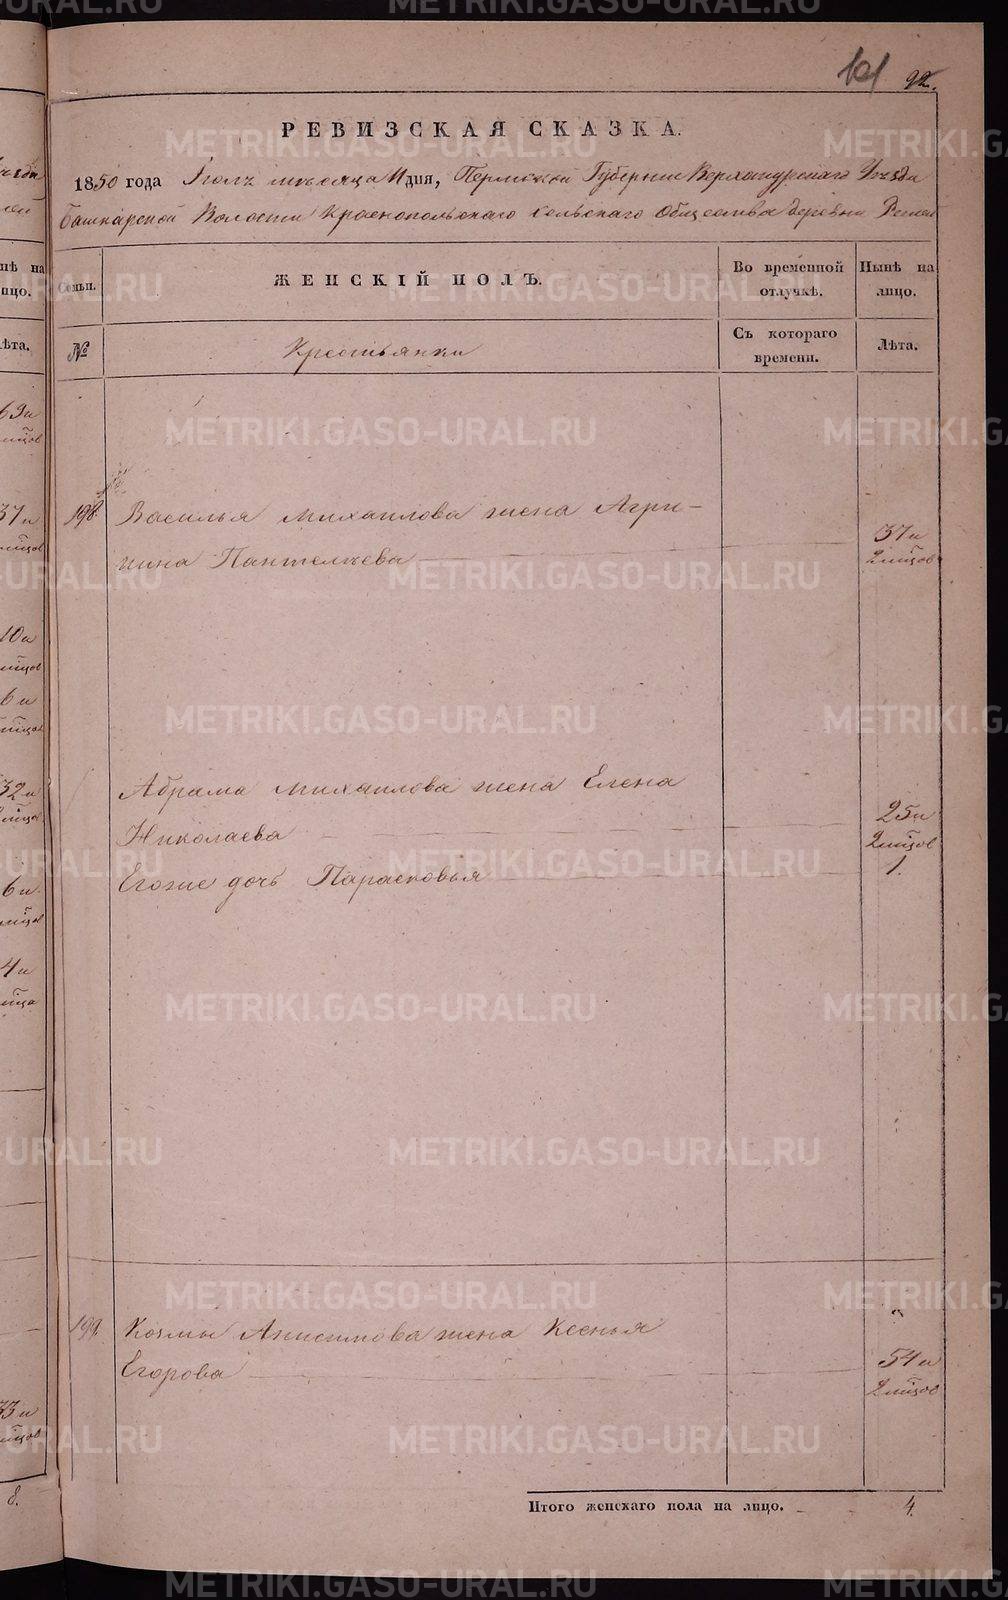 101 92.
РЕВИЗСКАЯ СКАЗКА.
1850 года Іюлъ мѣсяца 11 дня, Пермской Губерніи Верхотурскаго Уѣзда
Башкарской Волости Краснопольскаго сельскаго Общества деревни
Семьи. ЖЕНСКІЙ ПОЛЪ. Во временной отлучкѣ. Нынѣ на лицо.
№ Крестьянки Съ котораго времени. Лѣта.
198. Василья Михаилова жена Агри-
пина Пантелѣева 37 и 2 мцов
Абрама Михаилова жена Елена
Николаева 25 и 2 мцов
Егоже дочь Парасковья 1.
199. Козмы Анисимова жена Ксенья
Егорова 54 и 2 мцов
Итого женскаго пола на лицо. 4.
METRIKI.GASO-URAL.RU